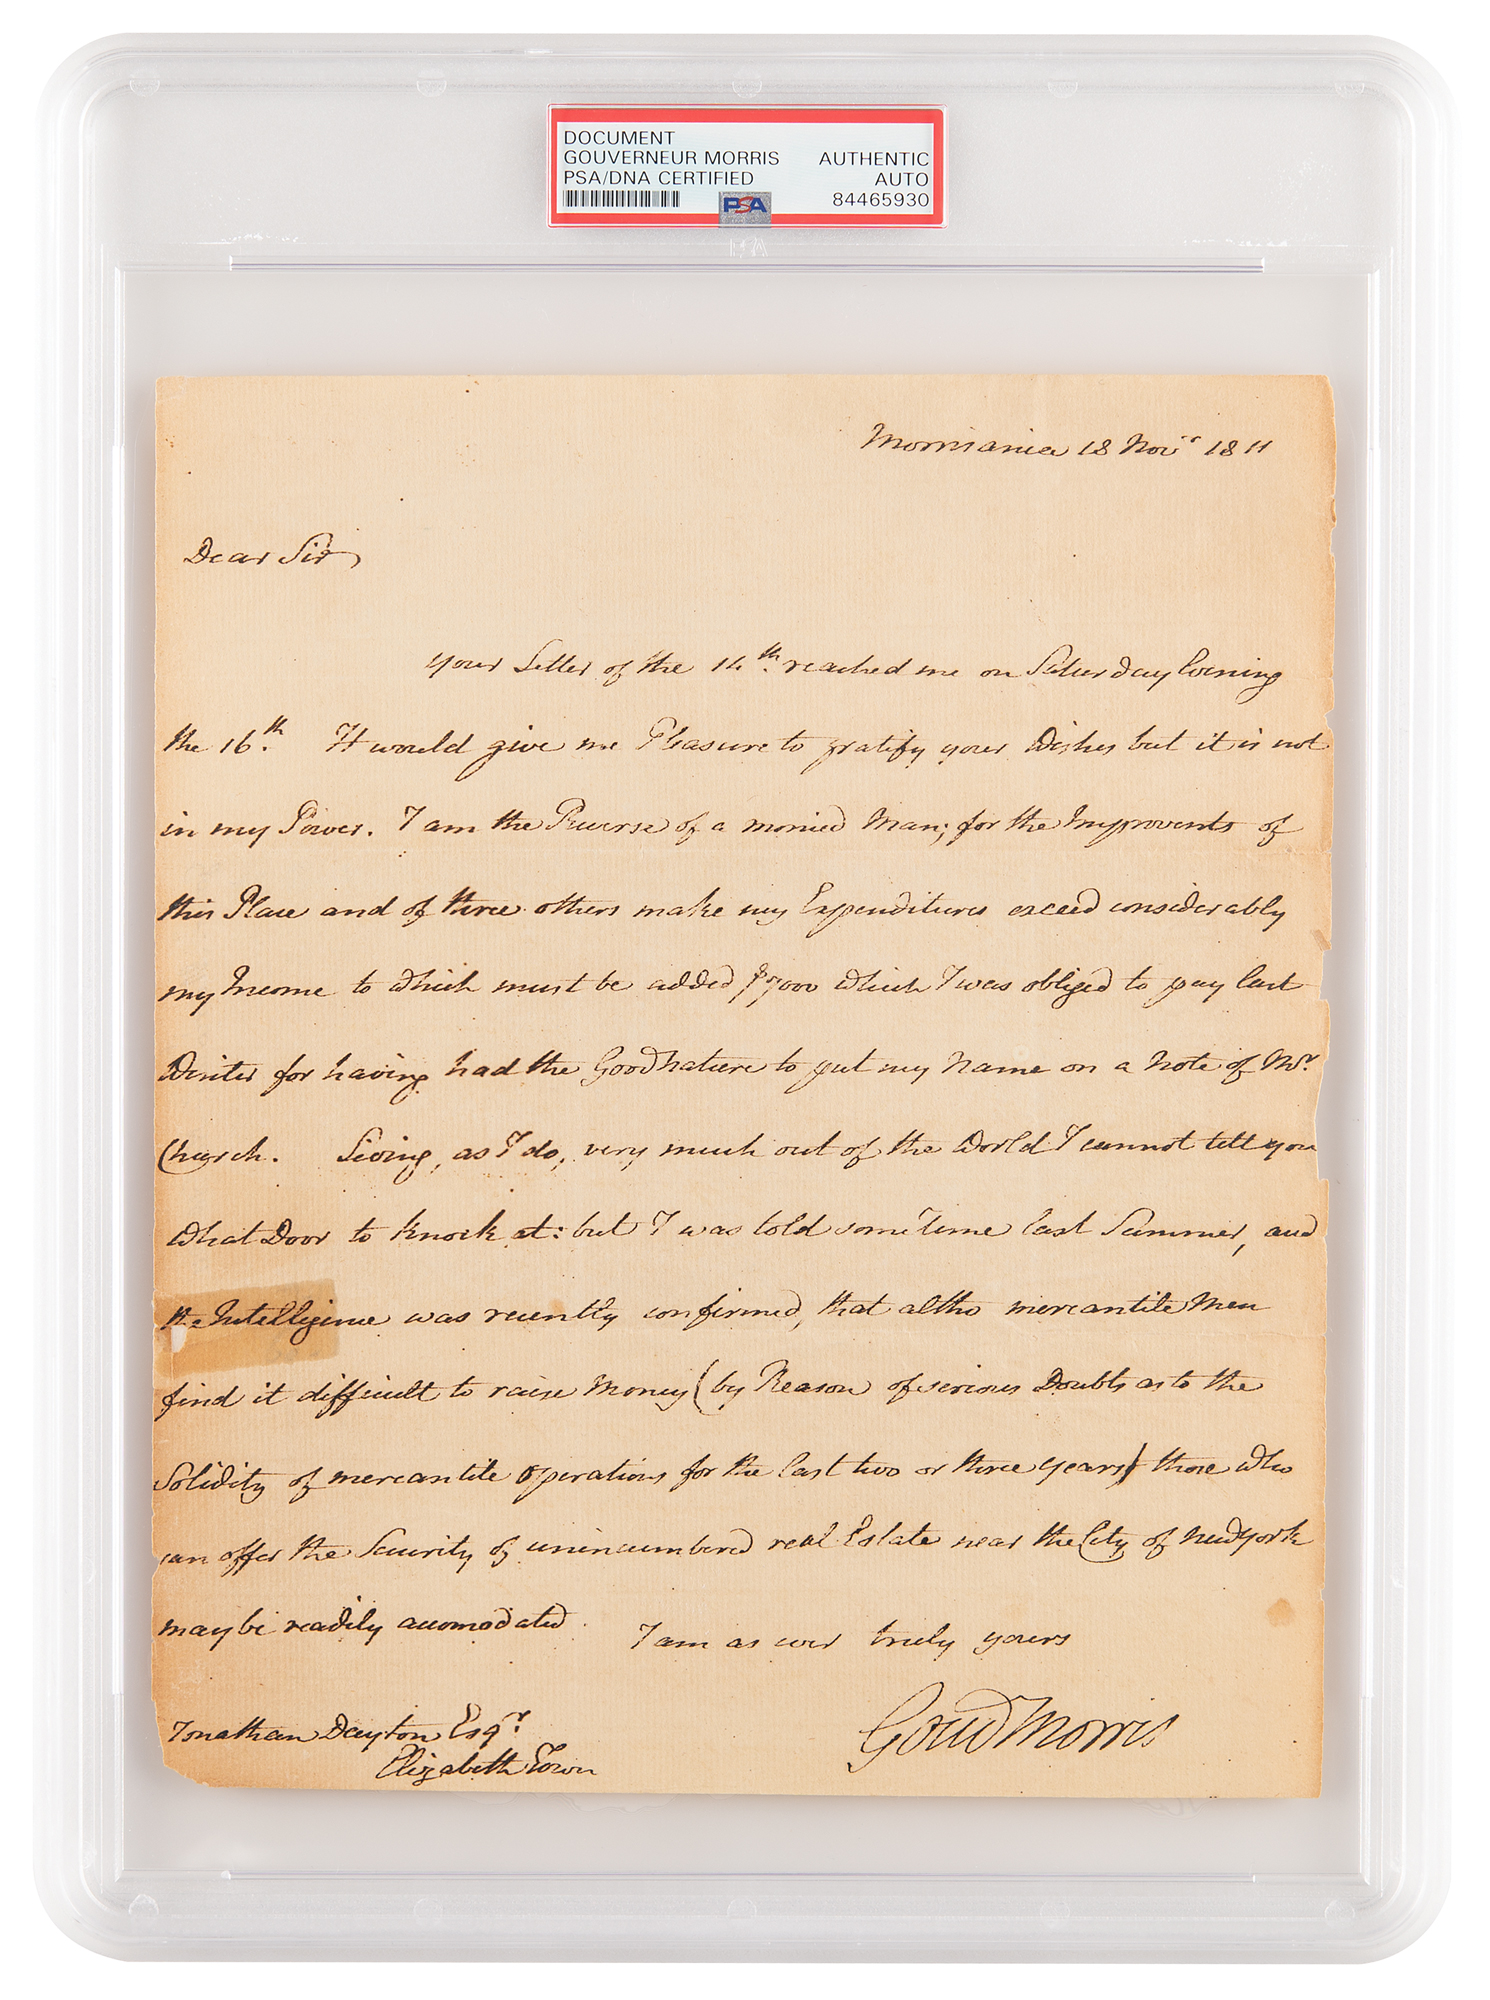 DOCUMENT
GOUVERNEUR MORRIS AUTHENTIC
PSA/DNA CERTIFIED AUTO
PSA 84465930
Morrisania 18 Nov.r 1811
Dear Sir,
your Letter of the 14th. reached me on Saturday Evening
the 16th. It would give me Pleasure to gratify your Wishes but it is not
in my Power. I am the Reverse of a monied Man; for the Improvents of
this Place and of three others make my Expenditures exceed considerably
my Income to which must be added $7000 which I was obliged to pay last
Winter for having had the Goodnature to put my Name on a Note of Mr.
Church. Living, as I do, very much out of the World I cannot tell you
what Door to knock at: but I was told sometime last Summer, and
the Intelligence was recently confirmed, that altho mercantile Men
find it difficult to raise Money (by Reason of serious Doubts as to the
Solidity of mercantile Operations for the last two or three years) those who
can offer the Security of unincumbered real Estate near the City of New York
may be readily accomodated. I am as ever truly yours
Gouv Morris
Jonathan Dayton Esqr.
Elizabeth Town